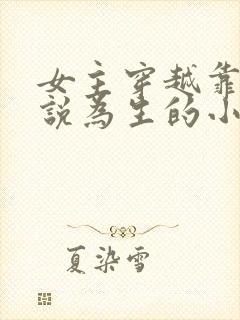 女主穿越靠
說為生的小
夏染雪